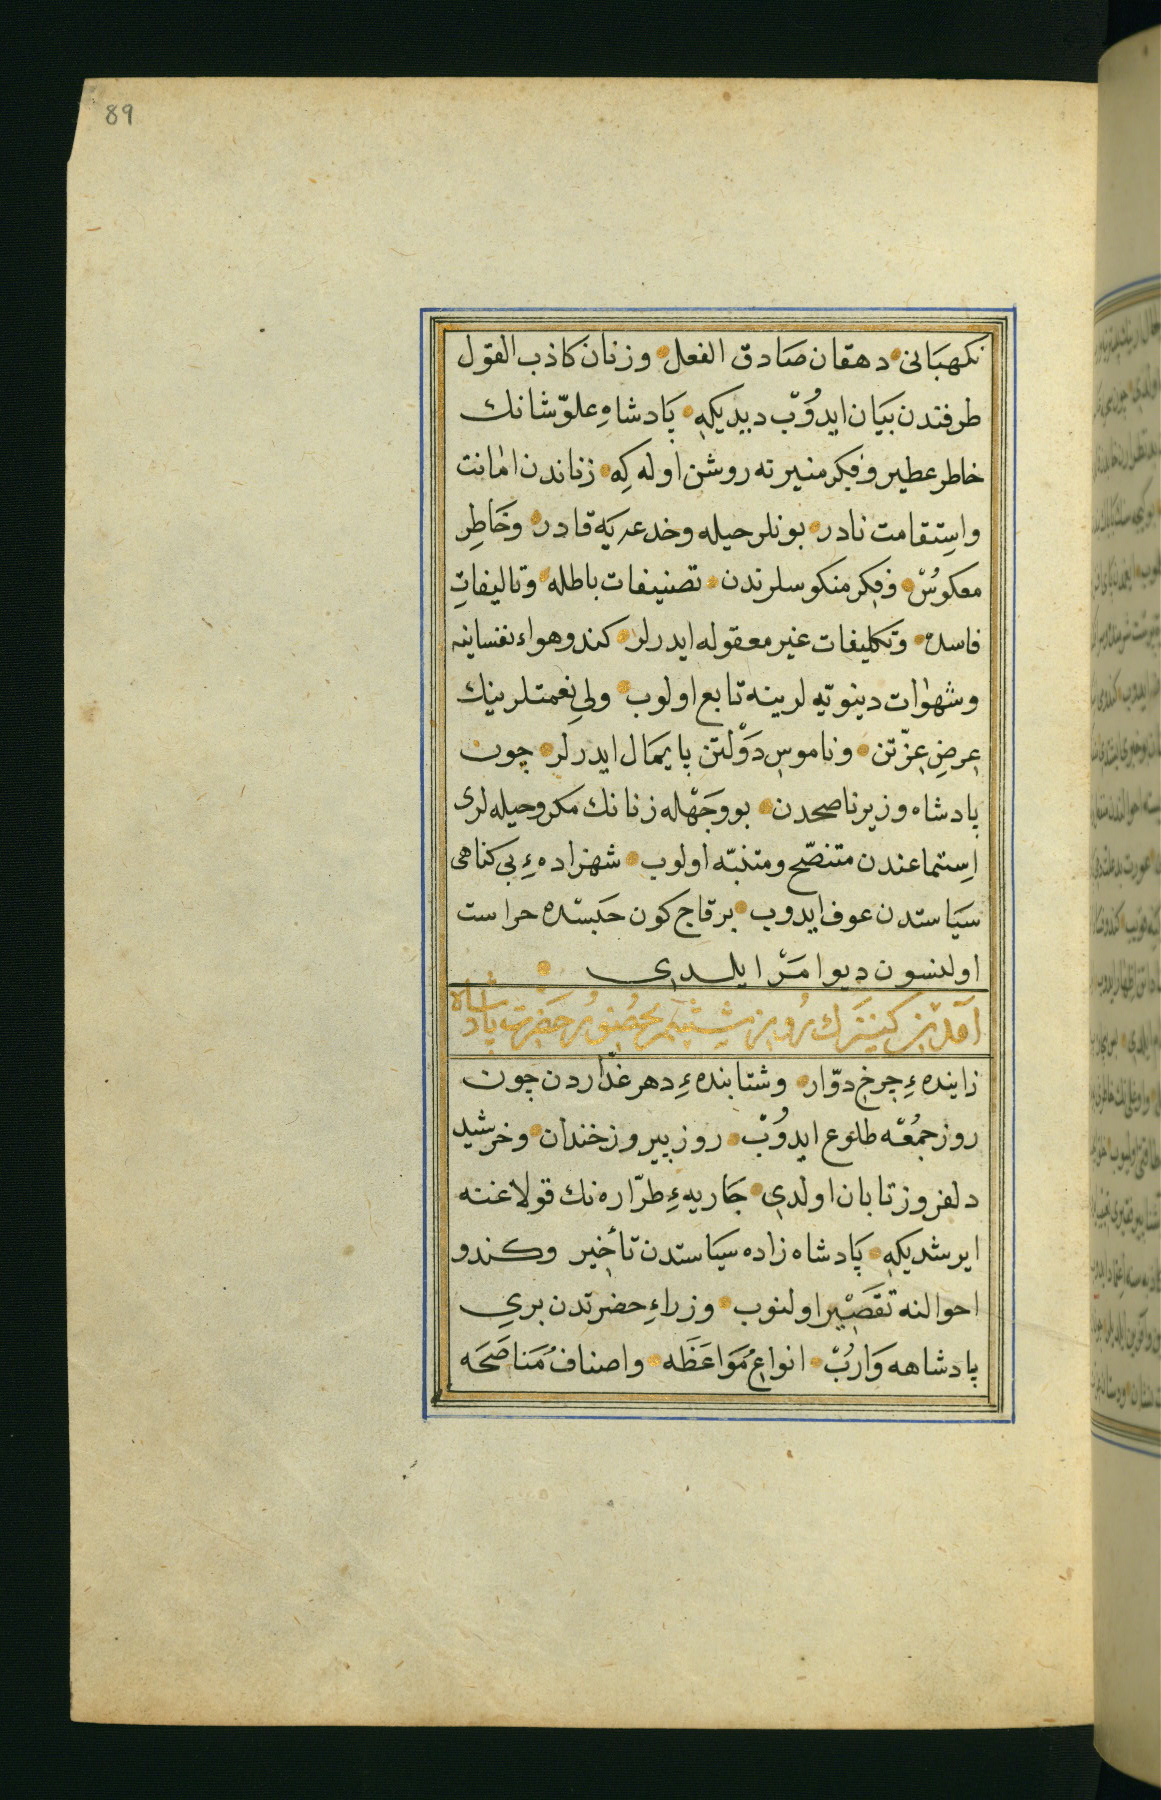 89
نكهبانی دهقان صادق الفعل وزنان كاذب القول
طرفندن بیان ایدوب دیدیكه پادشاهِ علوّشانك
خاطر عطیر وفكر منیرنه روشن اوله كه زناندن امانت
واستقامت نادر بونلر حیله وخدعه یه قادر وخاطر
معكوس وفكر منكوسلرندن تصنیفات باطله وتالیفات
فاسده وتكلیفات غیر معقوله ایدرلر كندو هواء نفسانیه
وشهوات دنیویه لرینه تابع اولوب ولی نعمتلرینك
عرضِ عزّتن وناموسِ دولتن پایمال ایدرلر چون
پادشاه وزیر ناصحدن بو وجهله زنانك مكر وحیله لری
استماعندن متنصّح ومتنبّه اولوب شهزادهءِ بی كناهی
سیاستدن عوف ایدوب بر قاچ كون حبسده حراست
اولنسون دیو امر ایلدی
آمدن كنیزك روز ششم بحضور حضرت پادشاه
زایندهءِ چرخ دوّار وشتابندهءِ دهر غدّاردن چون
روز جمعه طلوع ایدوب روز پیروز خندان وخرشید
دلفروز تابان اولدی جاریهءِ طرّاره نك قولاغنه
ایرشدیكه پادشاه زاده سیاستدن تأخیر وكندو
احوالنه تقصیر اولنوب وزراءِ حضرتدن بری
پادشاهه واروب انواع مواعظه واصناف مناصحه